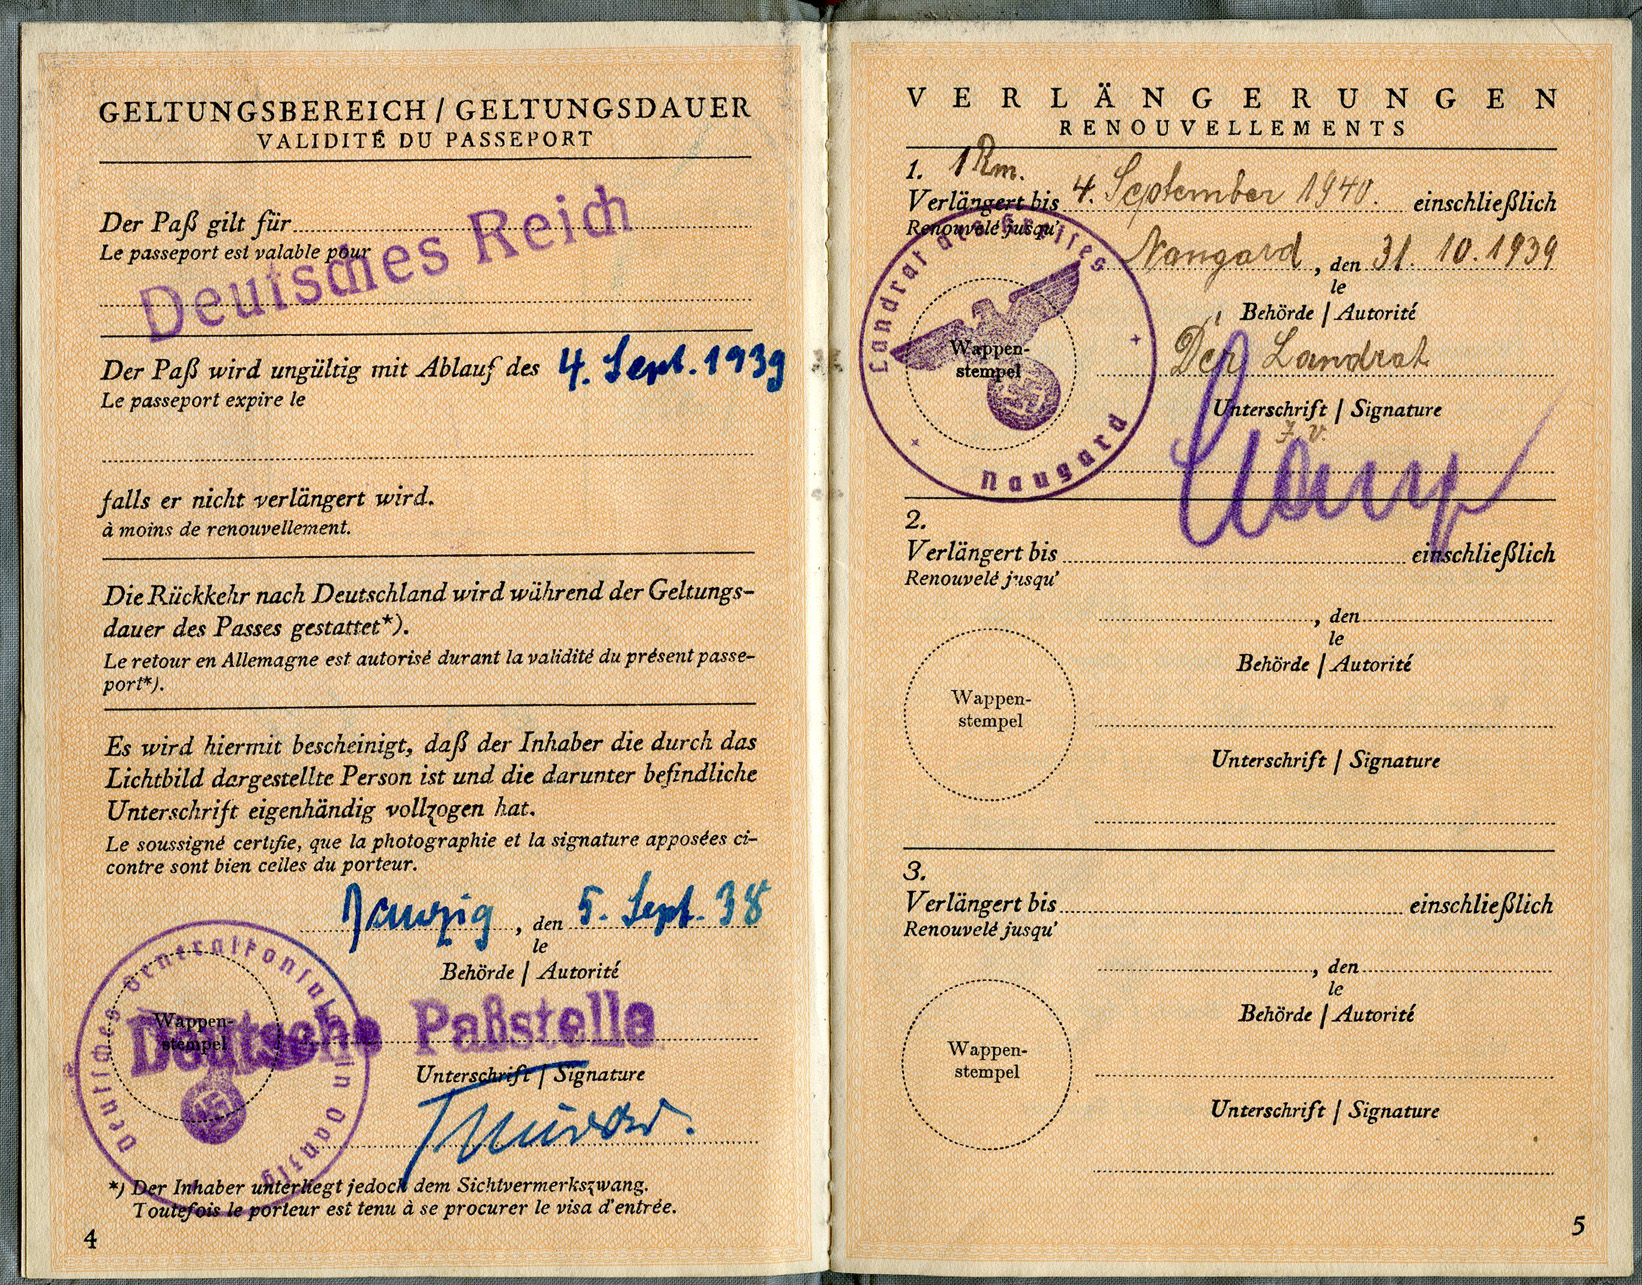 GELTUNGSBEREICH / GELTUNGSDAUER
VALIDITÉ DU PASSEPORT
Der Paß gilt für
Le passeport est valable pour
Deutsches Reich
Der Paß wird ungültig mit Ablauf des 4. Sept. 1939
Le passeport expire le
falls er nicht verlängert wird.
à moins de renouvellement.
Die Rückkehr nach Deutschland wird während der Geltungs-
dauer des Passes gestattet*).
Le retour en Allemagne est autorisé durant la validité du présent passe-
port*).
Es wird hiermit bescheinigt, daß der Inhaber die durch das
Lichtbild dargestellte Person ist und die darunter befindliche
Unterschrift eigenhändig vollzogen hat.
Le soussigné certifie, que la photographie et la signature apposées ci-
contre sont bien celles du porteur.
Danzig, den 5. Sept. 38
le
Behörde / Autorité
Deutsches Generalkonsulat in Danzig
Wappen-
stempel
Deutsche Paßstelle
Unterschrift / Signature
*) Der Inhaber unterliegt jedoch dem Sichtvermerkszwang.
Toutefois le porteur est tenu à se procurer le visa d'entrée.
4
VERLÄNGERUNGEN
RENOUVELLEMENTS
1. 1 Rm.
Verlängert bis 4. September 1940. einschließlich
Renouvelé jusqu'
Naugard, den 31. 10. 1939
le
Behörde / Autorité
Landrat des Kreises Naugard
Wappen-
stempel
Der Landrat
Unterschrift / Signature
I. V.
2.
Verlängert bis einschließlich
Renouvelé jusqu'
, den
le
Behörde / Autorité
Wappen-
stempel
Unterschrift / Signature
3.
Verlängert bis einschließlich
Renouvelé jusqu'
, den
le
Behörde / Autorité
Wappen-
stempel
Unterschrift / Signature
5